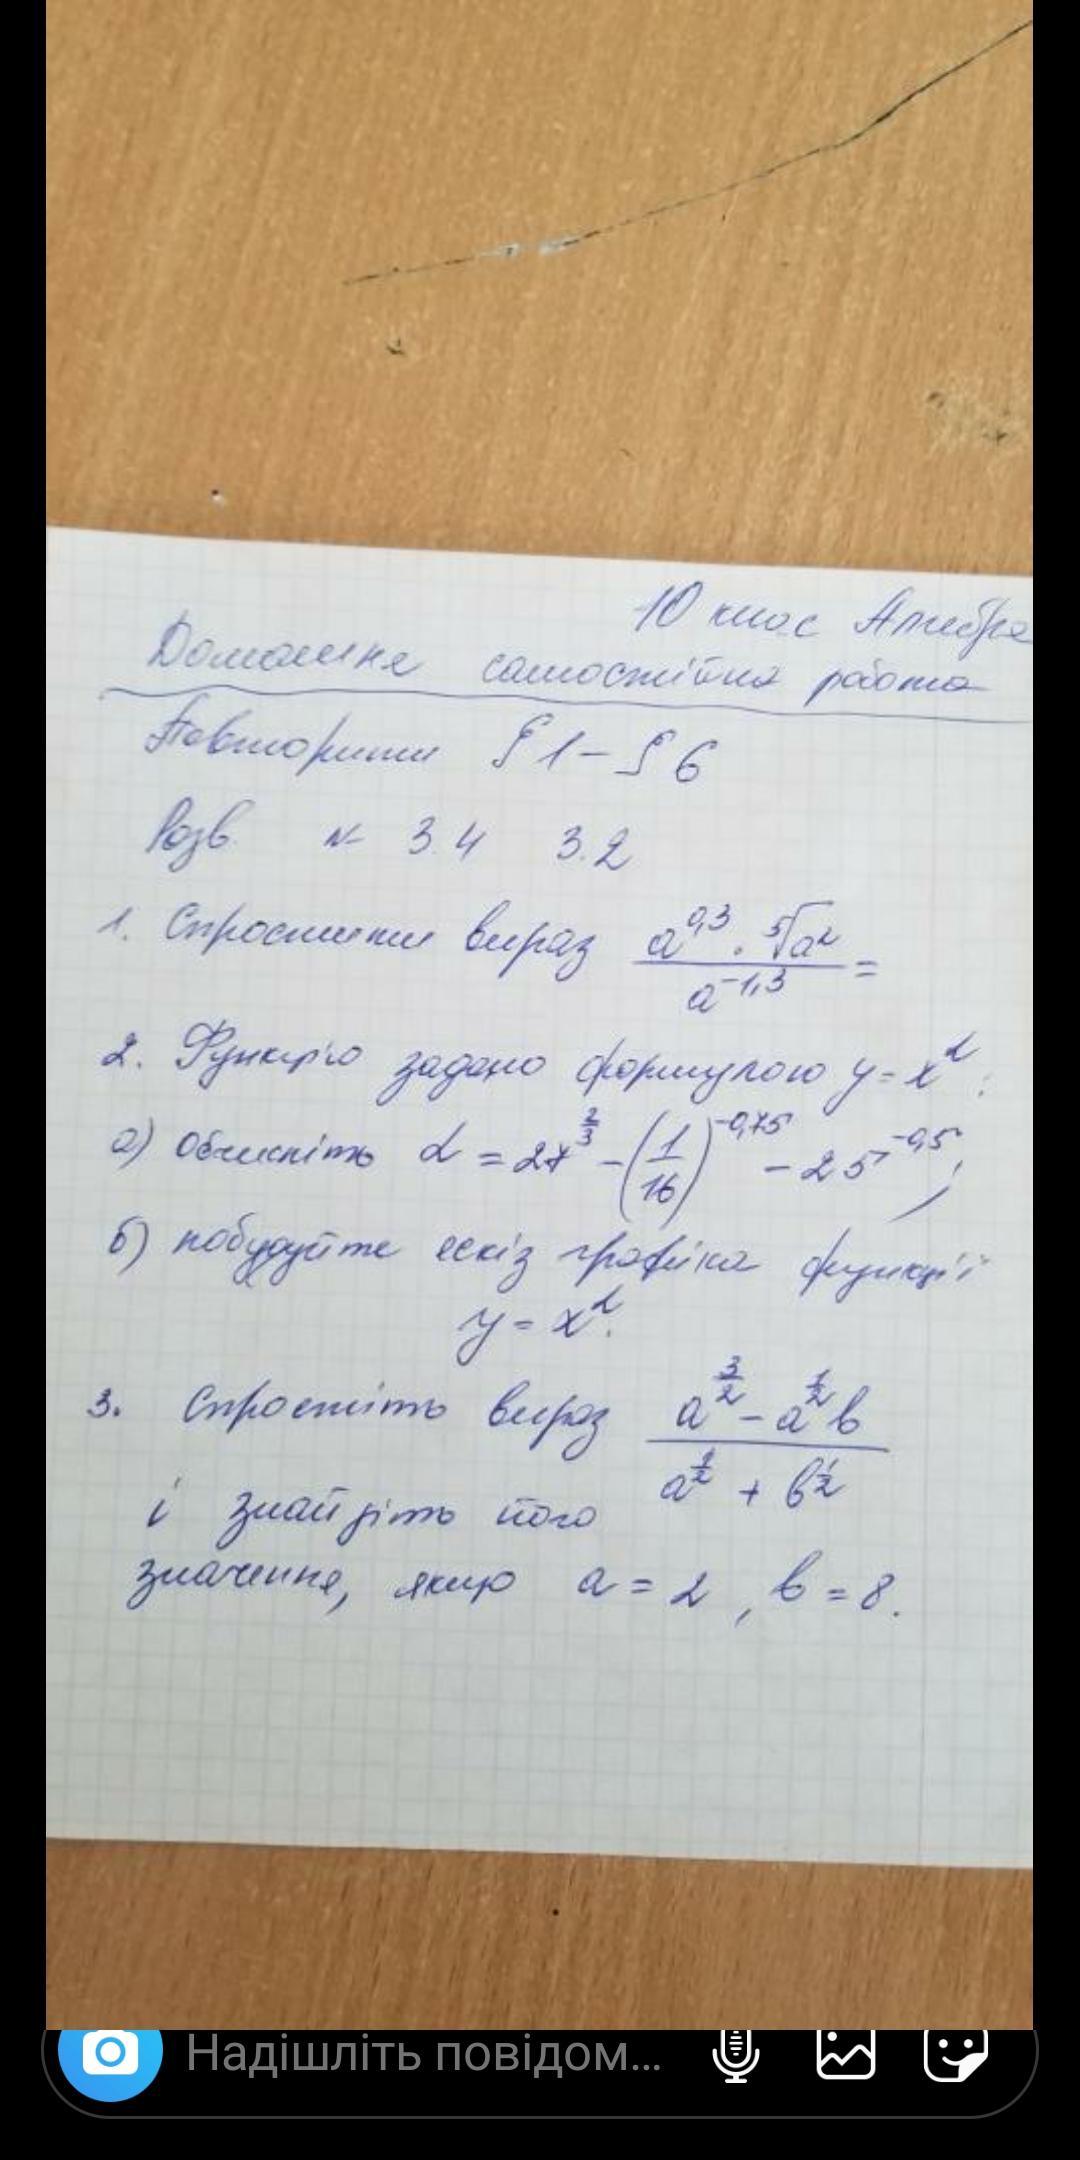 10 клас Алгебра
Домашня самостійна робота
Повторити §1-§6
Розв. № 3.4 3.2
1. Спростити вираз a^{0,3} · \sqrt[5]{a^2} / a^{-1,3} =
2. Функцію задано формулою y = x^α:
а) обчисліть α = 27^{2/3} - (1/16)^{-0,75} - 25^{-0,5};
б) побудуйте ескіз графіка функції
y = x^α.
3. Спростіть вираз a^{3/2} - a^{1/2}b / a^{1/2} + b^{1/2}
і знайдіть його
значення, якщо a = 2, b = 8.
Надішліть повідом...